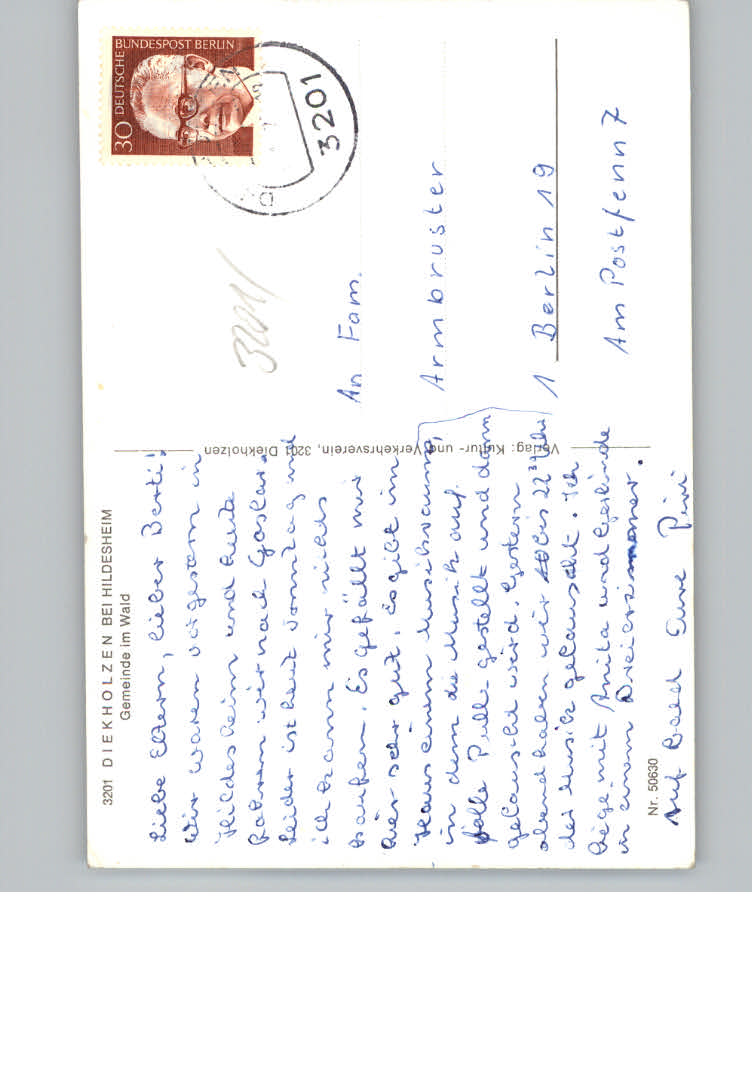 3201 DIEKHOLZEN BEI HILDESHEIM
Gemeinde im Wald
Liebe Eltern, lieber Berti!
Wir waren vorgestern in
Hildesheim und heute
fahren wir nach Goslar.
Leider ist heut Sonntag und
ich kann mir nichts
kaufen. Es gefällt mir
hier sehr gut. Es gibt im
Haus einem Musikraum,
in dem die Musik auf
volle Pulle gestellt und dann
gelauscht wird. Gestern
abend haben wir 10 bis 22³⁰ Uhr
der Musik gelauscht. Ich
liege mit Anita und Gerlinde
in einem Dreierzimmer.
Auf Bald Eure
Nr. 50630
Verlag: Kultur- und Verkehrsverein, 3201 Diekholzen
DEUTSCHE BUNDESPOST BERLIN
30
3201
3201
An Fam.
Armbruster
1 Berlin 19
Am Postfenn 7